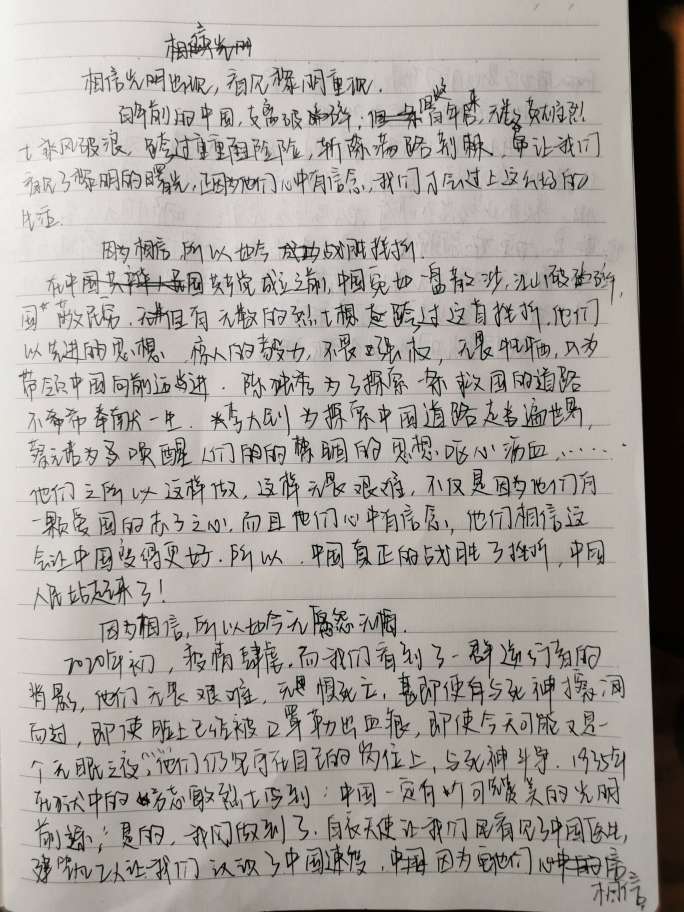 相信光明
相信光明出现,看见黎明重现.
百年前的中国,支离破碎;但百年来,无数英雄烈
士乘风破浪,跨过重重阻险,斩除荡路荆棘,让我们
看见了黎明的曙光,正因为他们心中有信念,我们才会过上这么好的
生活.
因为相信,所以如今战胜挫折.
在中国共产党成立之前,中国宛如一盘散沙,江山破碎,
国散民穷,但有无数的烈士想起跨过这百挫折,他们
以先进的思想,惊人的毅力,不畏强权,无畏牺牲,只为
带领中国向前迈进.陈独秀为了探索一条救国的道路
不希希奔献一生.李大钊为探索中国道路走当遍世界,
蔡元培为了唤醒人们的的禁锢的思想呕心沥血,……
他们之所以这样做,这样无畏艰难,不仅是因为他们有
一颗爱国的赤子之心,而且他们心中有信念,他们相信这
会让中国变得更好.所以,中国真正的战胜了挫折,中国
人民站起来了!
因为相信,所以如今无怨无悔.
2020年初,疫情肆虐,而我们看到了一群逆行者的
背影,他们无畏艰难,无惧死亡,即使自与死神擦洞
而过,即使脸上已经被口罩勒出血痕,即使今天可能又是一
个无眠之夜,他们仍坚守在自己的岗位上,与死神斗争.1935年
在狱中的方志敏烈士写到:中国一定有个可赞美的光明
前途;是的,我们做到了.白衣天使让我们看见了中国医生,
建筑工人让我们认识了中国速度,因为他们心中的信
相信